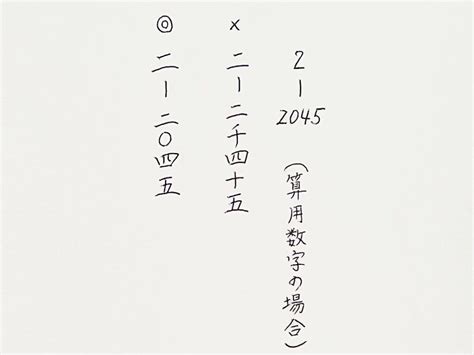 2-2045 (算用数字の場合)
×
二-二千四十五
◎
二-二〇四五